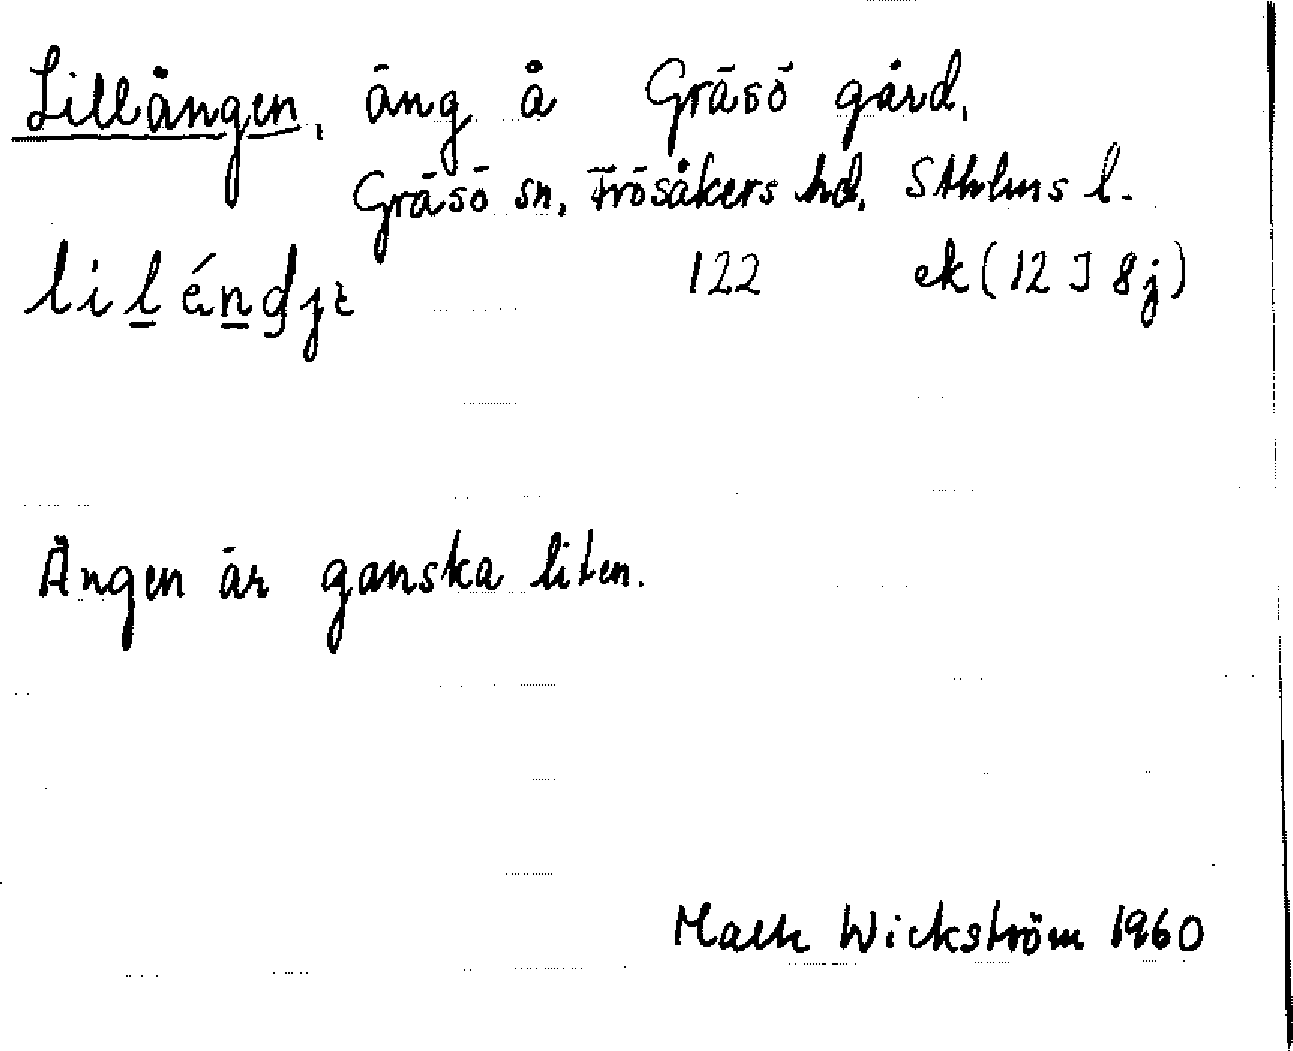 Lillängen, äng å Gräsö gård,
Gräsö sn, Frösåkers hd, Sthlms l.
122 ek (12 I 8j)
Ängen är ganska liten.
Wickström 1960